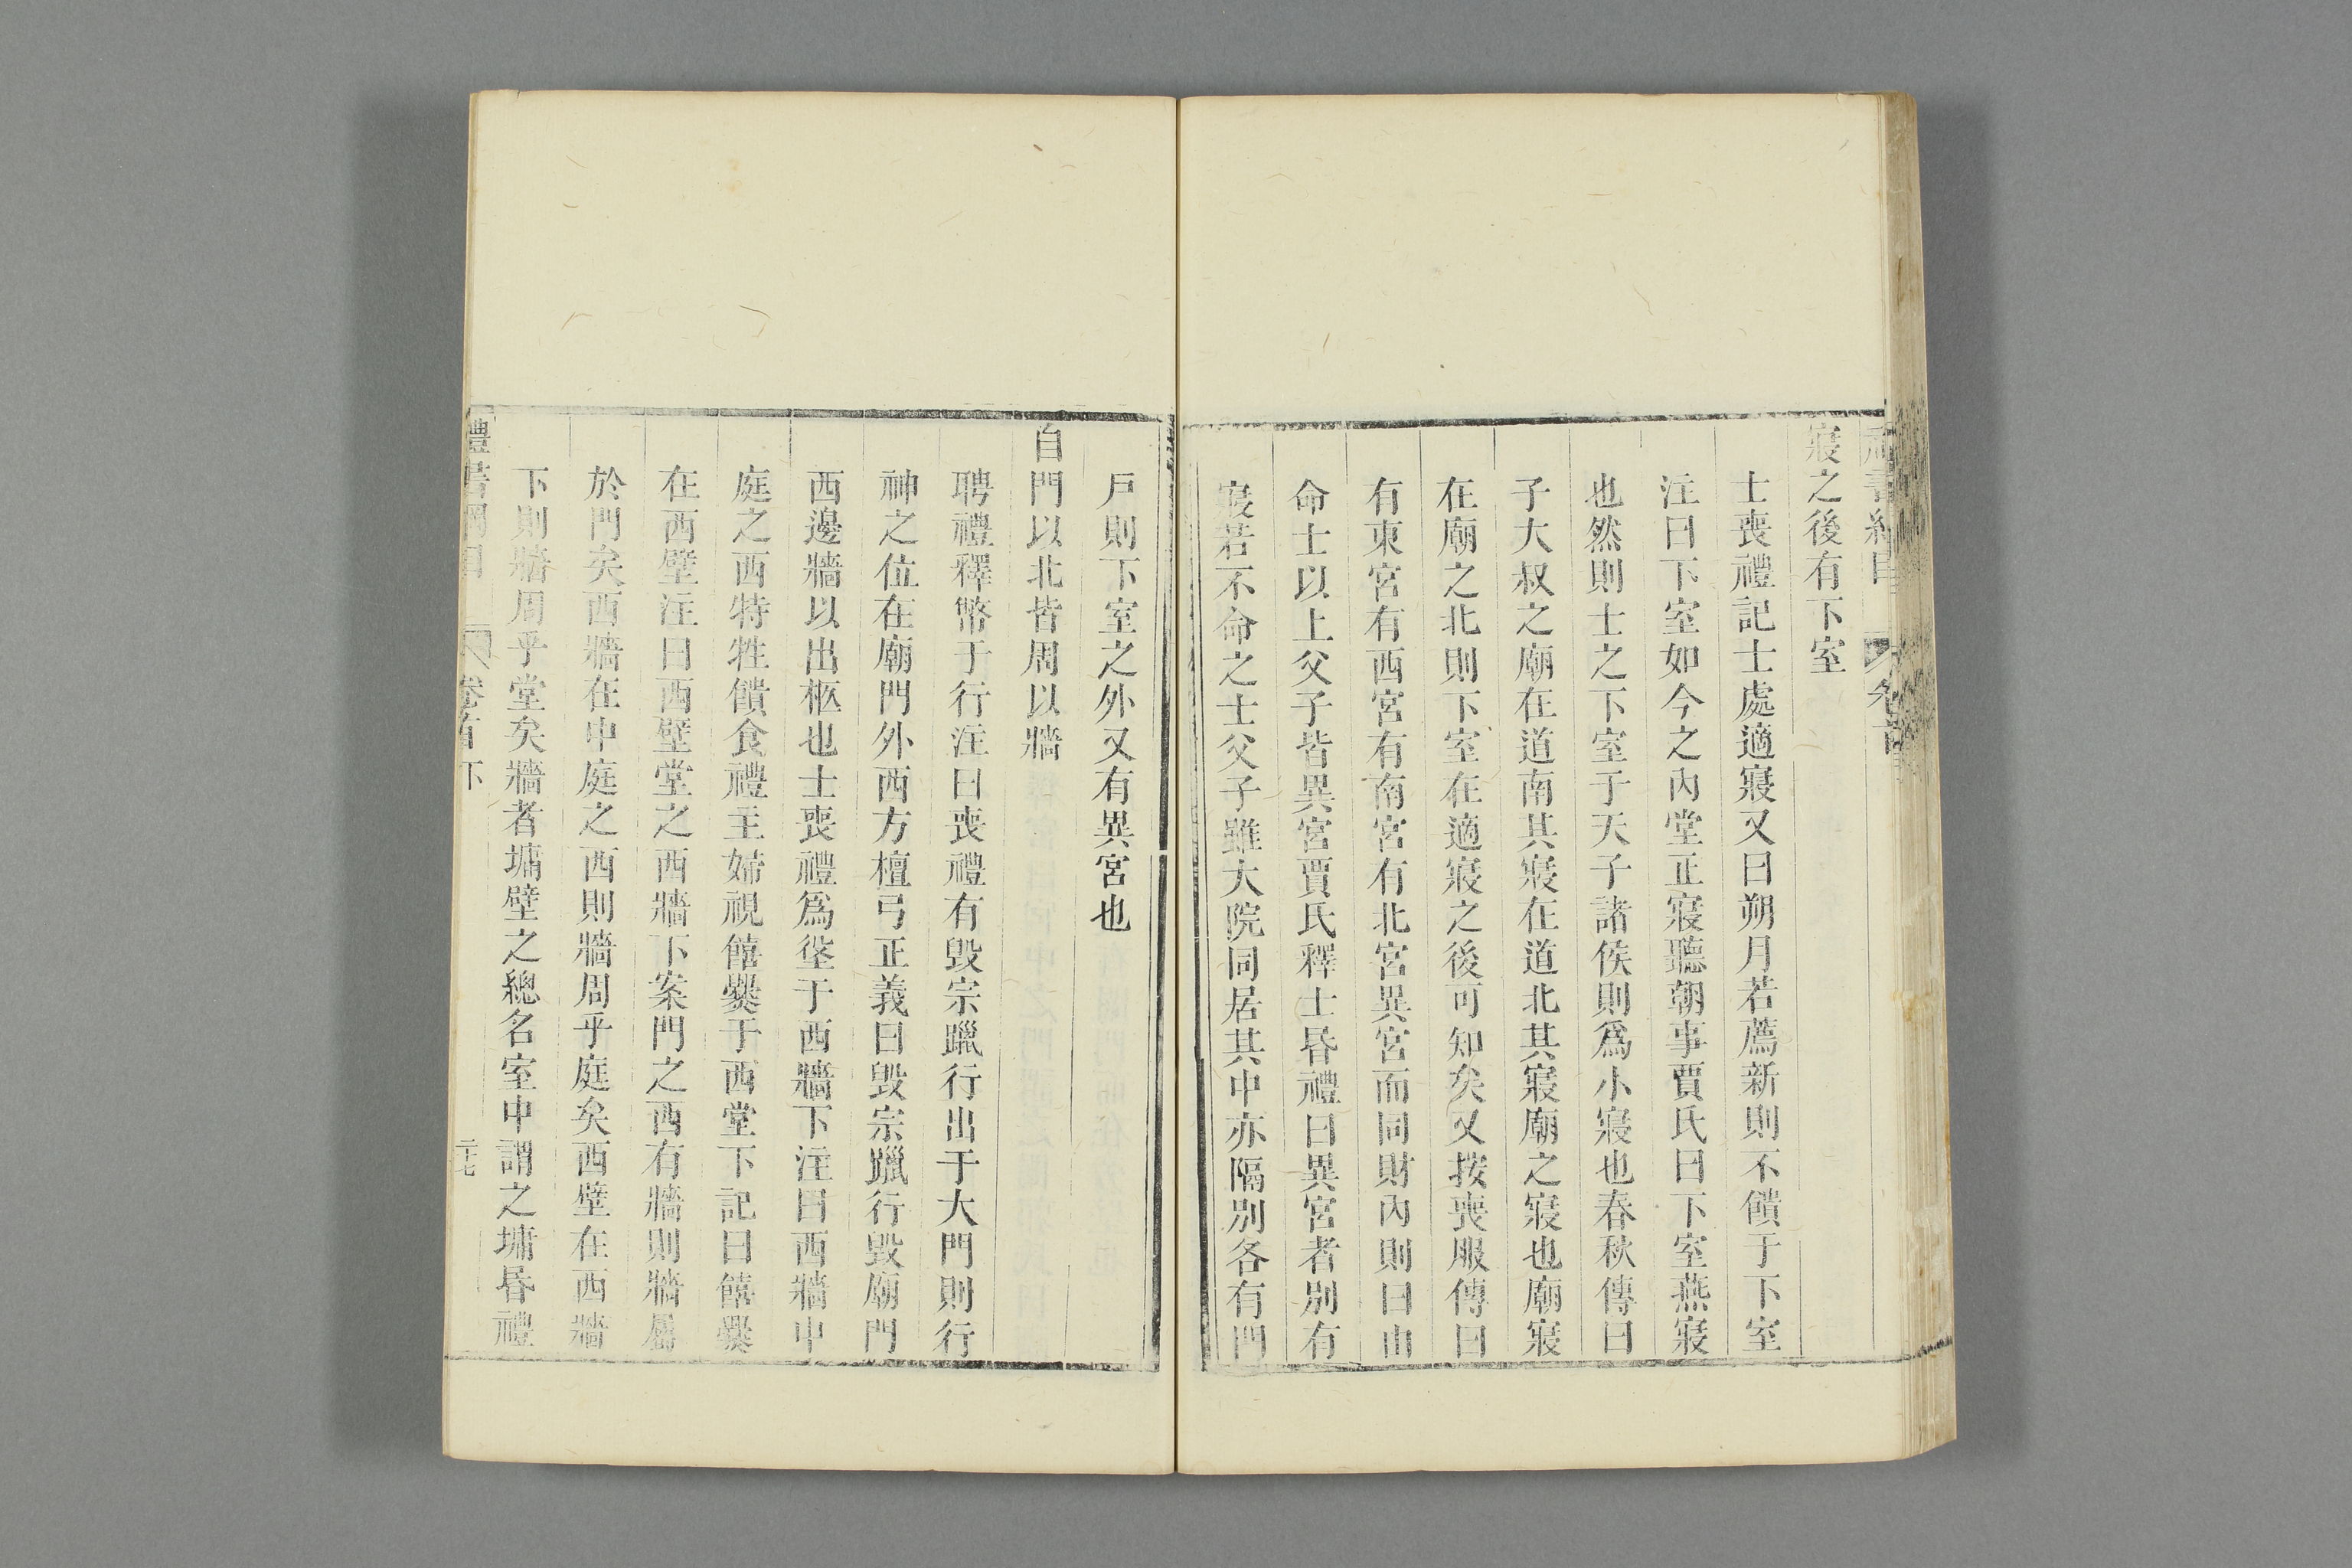 寢之後有下室
士喪禮記士處適寢又曰朔月若薦新則不饋于下室
注曰下室如今之內堂正寢聽朝事賈氏曰下室燕寢
也然則士之下室于天子諸侯則爲小寢也春秋傳曰
子大叔之廟在道南其寢在道北其寢廟之寢也廟寢
在廟之北則下室在適寢之後可知矣又按喪服傳曰
有東宮有西宮有南宮有北宮異宮而同財內則曰由
命士以上父子皆異宮賈氏釋士昏禮曰異宮者別有
寢若不命之士父子雖大院同居其中亦隔別各有門
戶則下室之外又有異宮也
自門以北皆周以牆
聘禮釋幣于行注曰喪禮有毀宗躐行出于大門則行
神之位在廟門外西方檀弓正義曰毀宗躐行毀廟門
西邊牆以出柩也士喪禮爲垼于西牆下注曰西牆中
庭之西特牲饋食禮主婦視饎爨于西堂下記曰饎爨
在西壁注曰西壁堂之西牆下案門之西有牆則牆屬
於門矣西牆在中庭之西則牆周乎庭矣西壁在西牆
下則牆周乎堂矣牆者墉壁之總名室中謂之墉昏禮
禮書綱目 卷首下 二十七